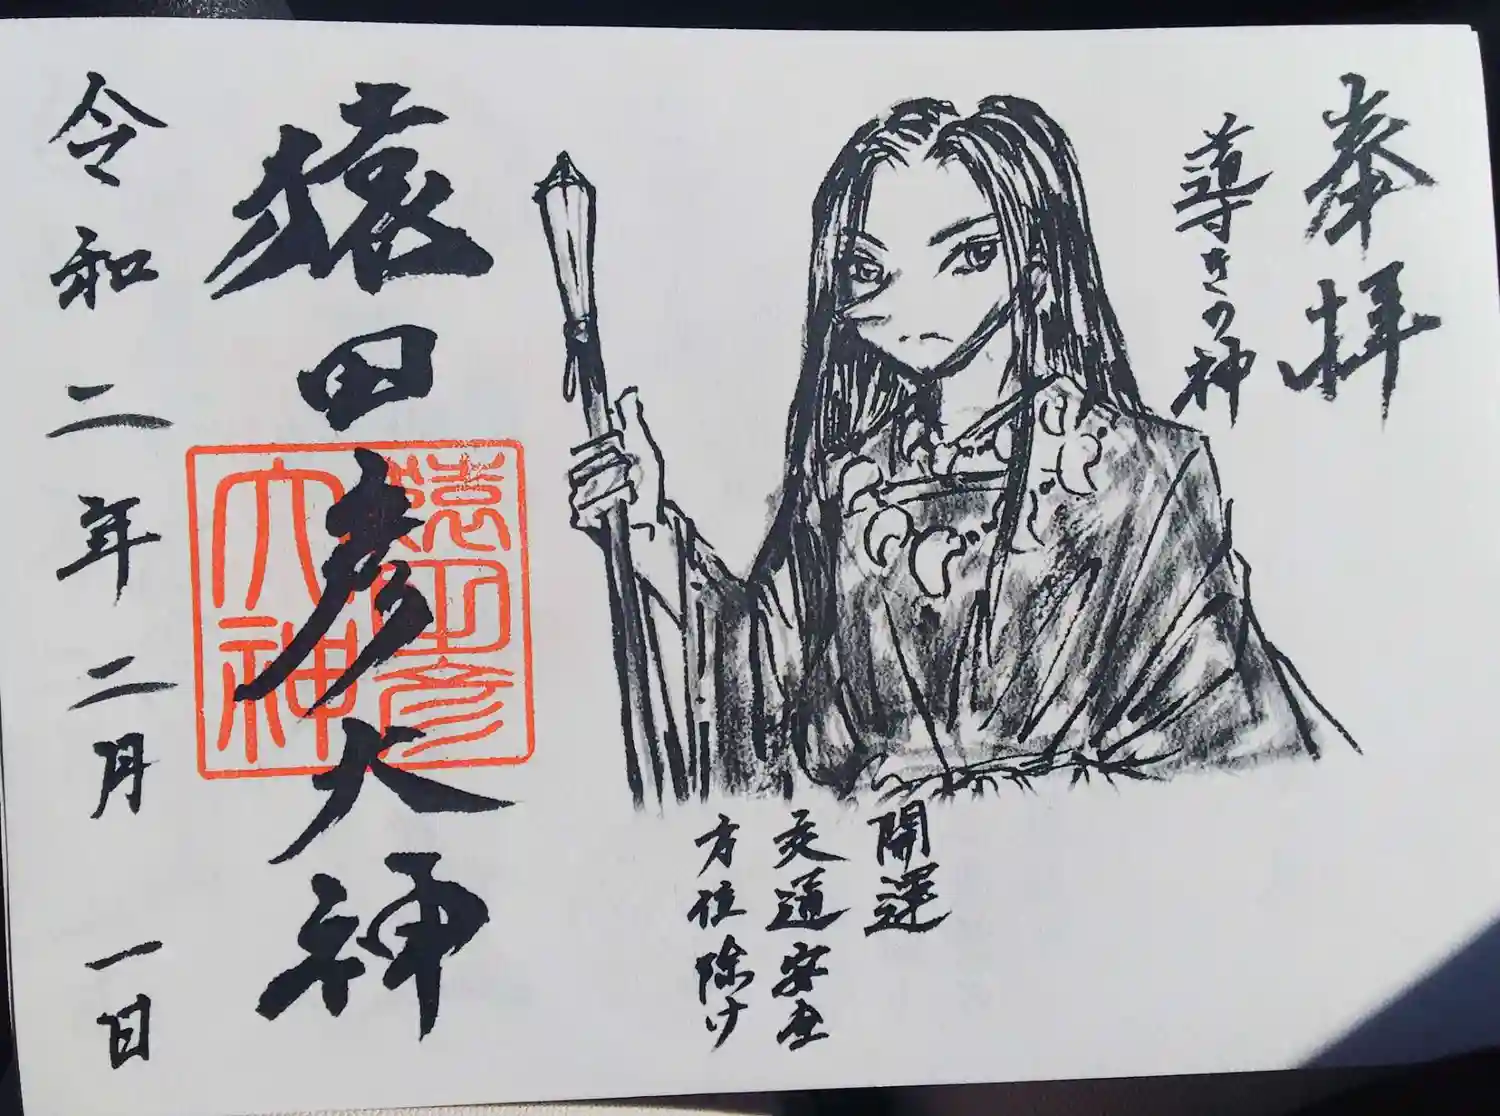 奉拝
導きの神
開運
交通安全
方位除け
猿田彦大神
猿田彦
大神
令和二年二月一日